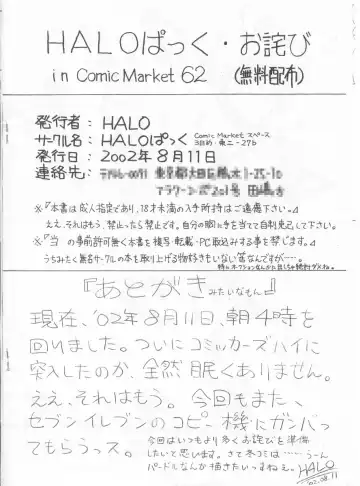 HALOぱっく・お詫び
in Comic Market 62 (無料配布)
発行者: HALO
サークル名: HALOぱっく Comic Market スペース 3日め・東ニ-27b
発行日: 2002年8月11日
連絡先:
※『本書は成人指定であり、18才未満の入手所持はご遠慮下さい。』
ええ、それはもう。禁止ったら禁止です。自分の胸に手を当てて自制更足して下さい。
※『当 の事前許可無く本書を複写・転載・PC取込みする事を禁じます。』
うちみたく無名サークルの本を取り上げる物好きもいない筈なんですが……。
『あとがき みたいなもん』
現在、'02年8月11日、朝4時を
回りました。ついにコミッカーズハイに
突入したのか、全然眠くありません。
ええ、それはもう。今回もまた、
セブンイレブンのコピー機にガンバっ
てもらうっス。
今回はいつもより多くお詫びを準備
したいと思います。さて冬コミは……うーん
パードルなんか描きたいっすねぇ。
HALO
'02.08.11